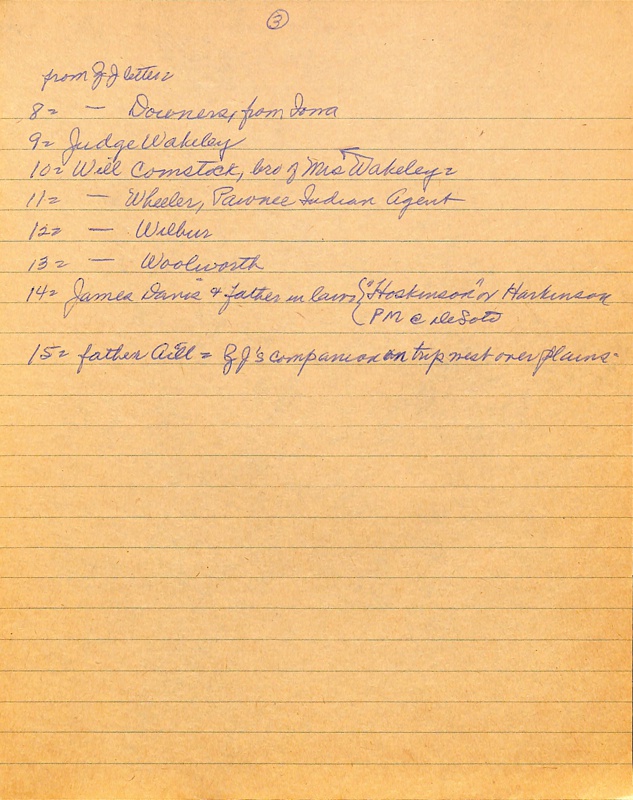 ③
from ZJ letter=
8= — Downers, from Iowa
9= Judge Wakeley
10= Will Comstock, bro of Mrs Wakeley=
11= — Wheeler, Pawnee Indian Agent
12= — Wilbur
13= — Woolworth
14= James Davis & father in laws { "Hoskinson" or Harkinson
( PM @ DeSoto
15= father = ZJ's companion on trip west over plains-